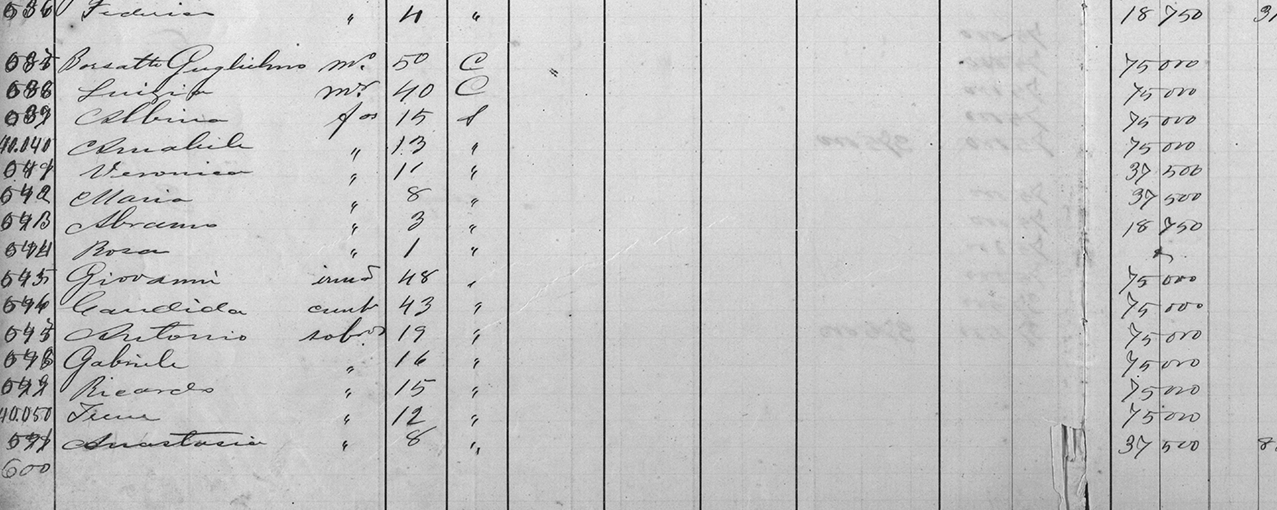 036 Federico " 4 " 18 750
037 Borsatti Guglielmo mº 50 C 75 000
038 Luigia mᵉʳ 40 C 75 000
039 Albina fºˢ 15 s 75 000
40.040 Amabile " 13 " 75 000
041 Veronica " 11 " 37 500
042 Maria " 8 " 37 500
043 Abramo " 3 " 18 750
044 Rosa " 1 "
045 Giovanni irmã 48 " 75 000
046 Candida cunh 43 " 75 000
047 Antonio sobrºˢ 19 " 75 000
048 Gabriele " 16 " 75 000
049 Ricardo " 15 " 75 000
40.050 Irene " 12 " 75 000
051 Anastasia " 8 " 37 500
600